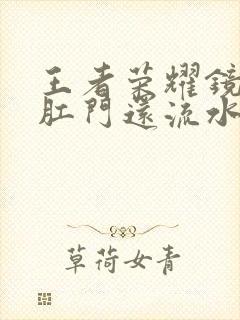 王者荣耀鏡
肛門還流水
草荷女青